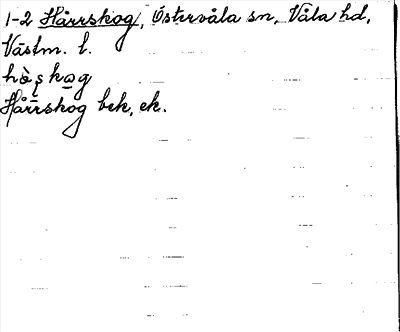 1-2 Hårrskog, Östervåla sn, Våla hd,
Västm. l.
Hårrskog bek, ek.